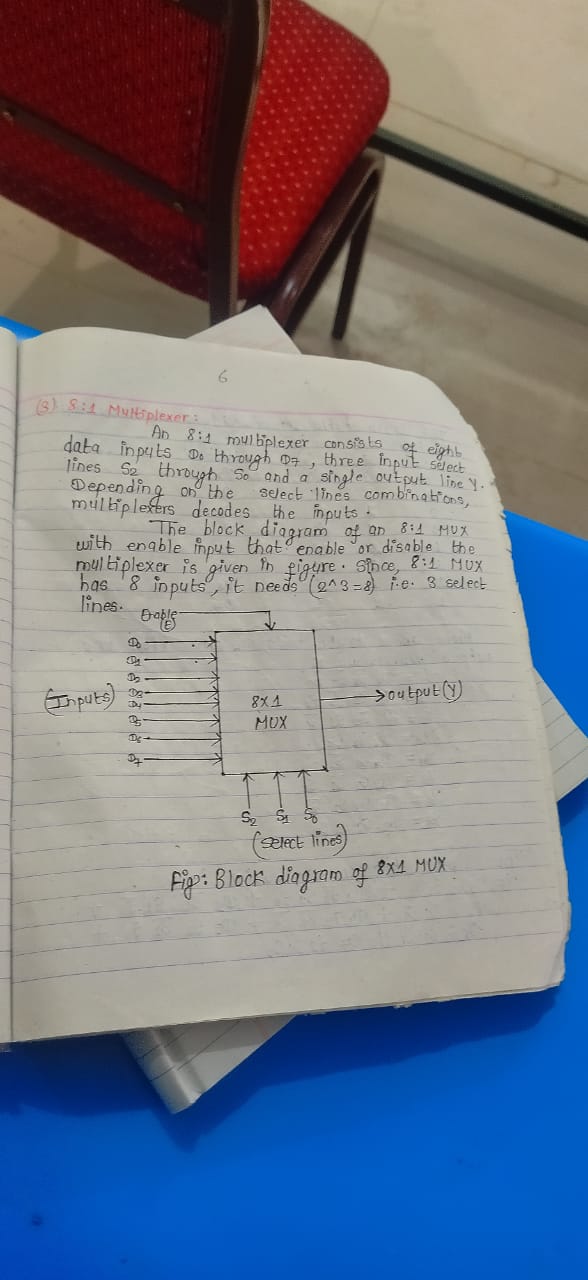 6
(3) 8:1 Multiplexer:
An 8:1 multiplexer consists of eight
data inputs D0 through D7, three input select
lines S2 through S0 and a single output line Y.
Depending on the select lines combinations,
multiplexers decodes the inputs.
The block diagram of an 8:1 MUX
with enable input that enable or disable the
multiplexer is given in figure. Since, 8:1 MUX
has 8 inputs, it needs (2^3=8) i.e. 3 select
lines.
Enable
(E)
D0
D1
D2
(Inputs) D3
D4
D5
D6
D7
8x1
MUX
output(Y)
S2 S1 S0
(select lines)
Fig: Block diagram of 8x1 MUX